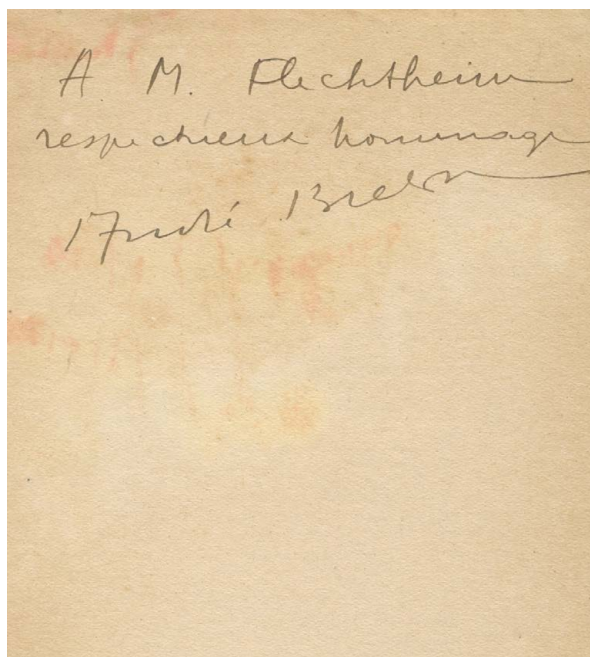 A M. Flechtheim
respectueux hommage
André Breton